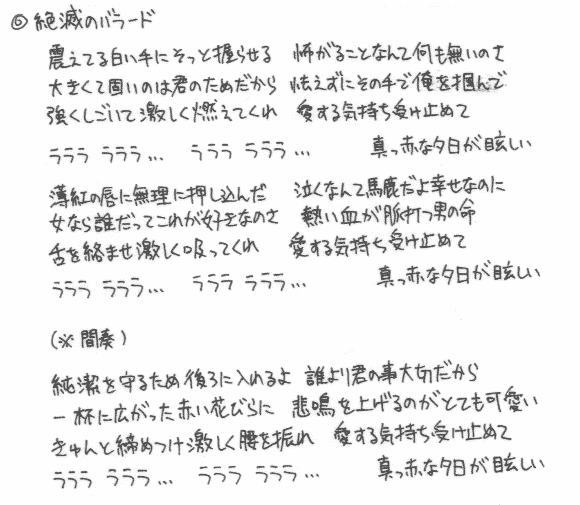 ⑥ 絶滅のバラード
震えてる白い手にそっと握らせる　怖がることなんて何も無いのさ
大きくて固いのは君のためだから　怯えずにその手で俺を掴んで
強くしごいて激しく燃えてくれ　愛する気持ち受け止めて
ラララ ラララ…　ラララ ラララ…　真っ赤な夕日が眩しい
薄紅の唇に無理に押し込んだ　泣くなんて馬鹿だよ幸せなのに
女なら誰だってこれが好きなのさ　熱い血が脈打つ男の命
舌を絡ませ激しく吸ってくれ　愛する気持ち受け止めて
ラララ ラララ…　ラララ ラララ…　真っ赤な夕日が眩しい
(※ 間奏)
純潔を守るため後ろに入れるよ　誰より君の事大切だから
一杯に広がった赤い花びらに　悲鳴を上げるのがとても可愛い
きゅんと締めつけ激しく腰を振れ　愛する気持ち受け止めて
ラララ ラララ…　ラララ ラララ…　真っ赤な夕日が眩しい